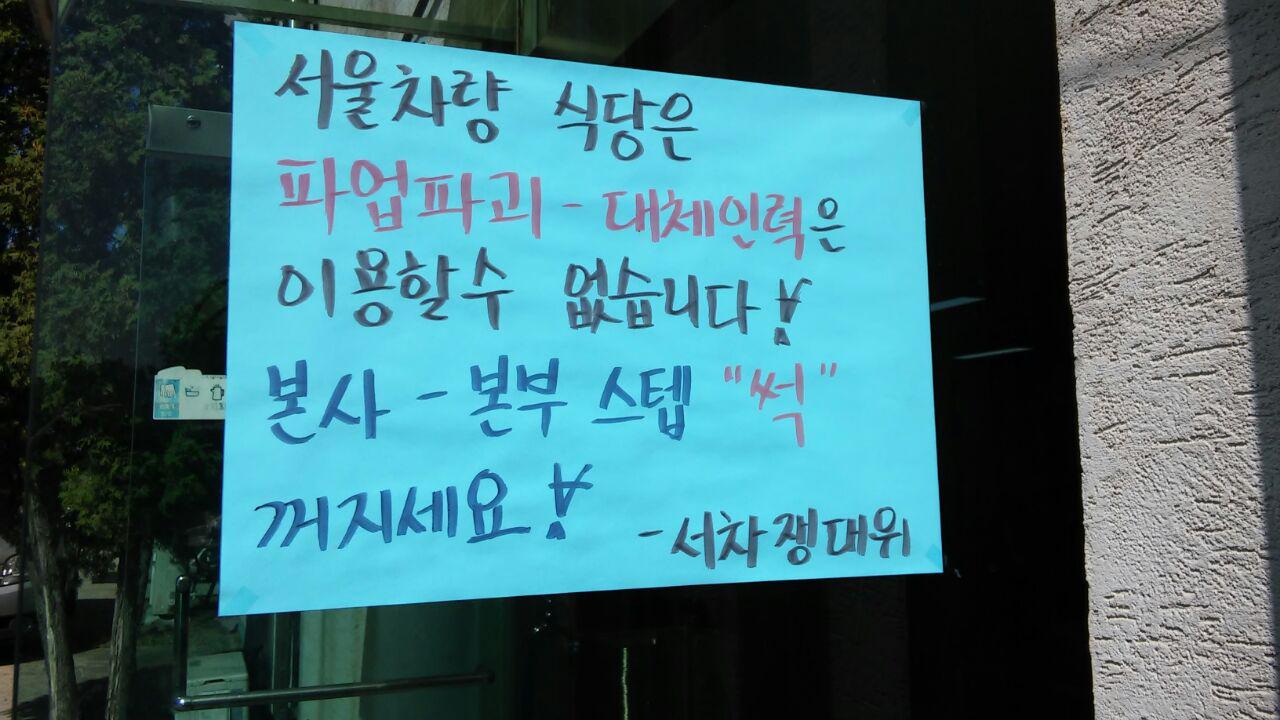 서울차량 식당은
파업파괴-대체인력은
이용할수 없습니다!
본사-본부 스텝 "썩"
꺼지세요!
-서차쟁대위